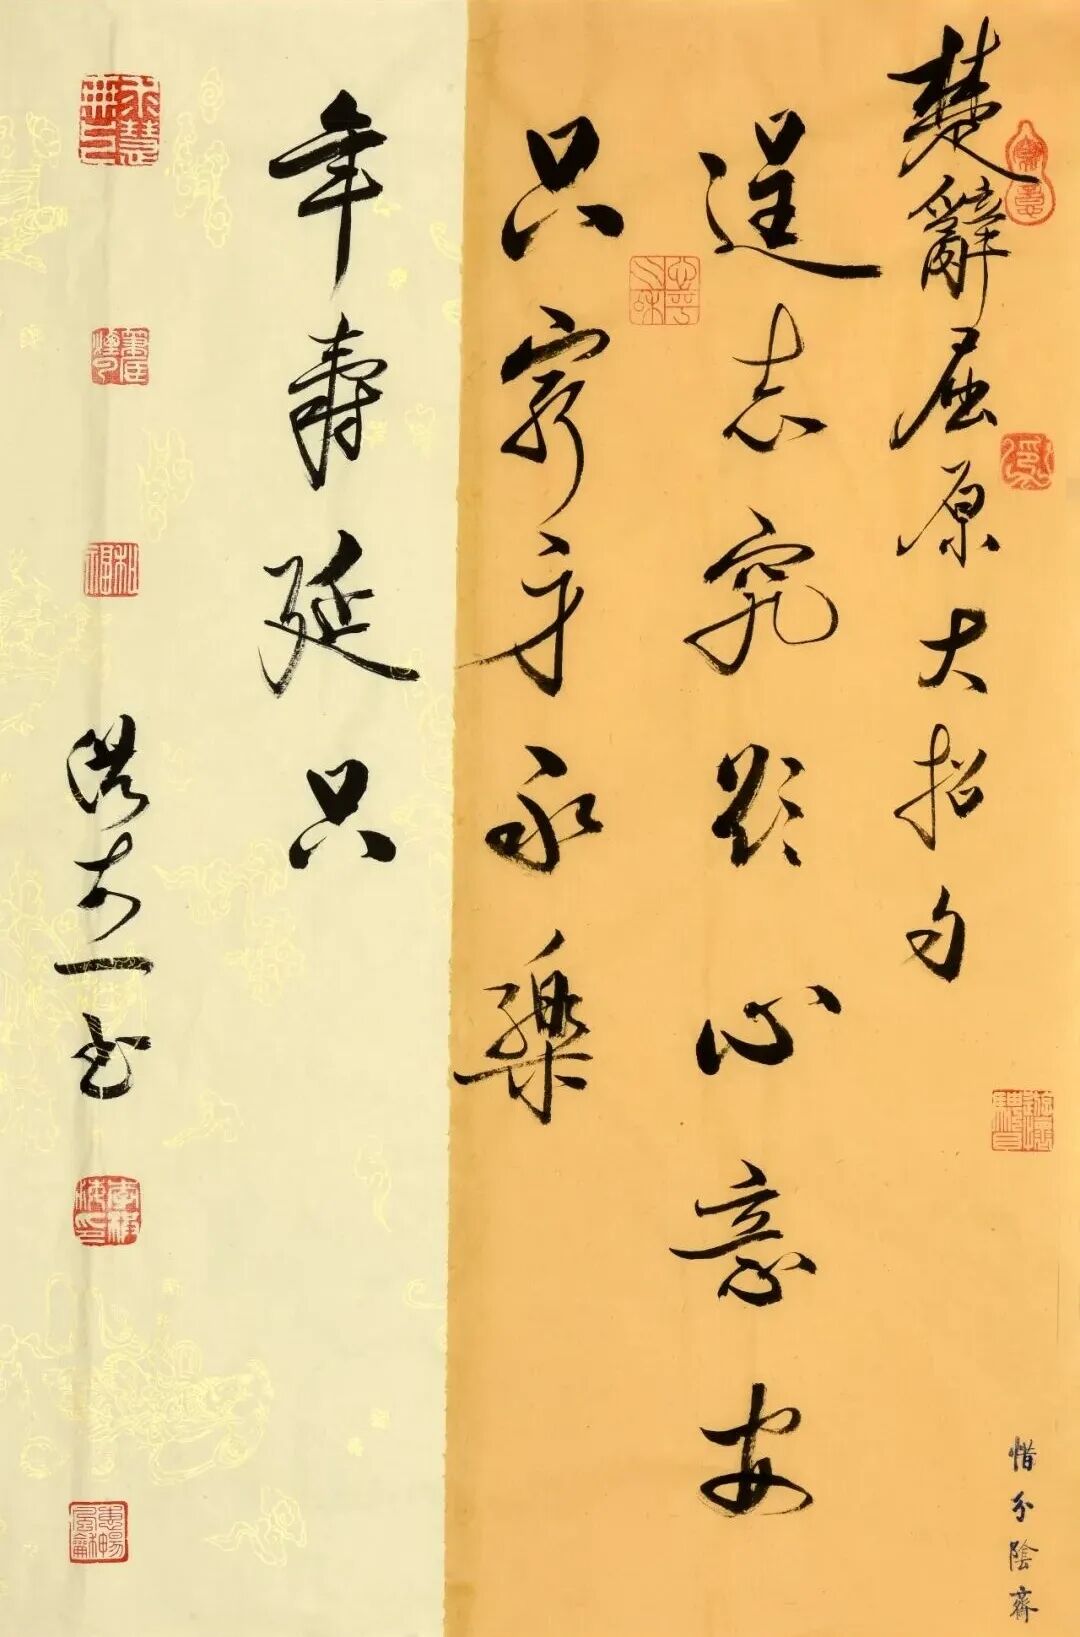 楚辭屈原大招句
逞志究欲心意安
只窮身永樂
年壽延只
一书
惜分陰齋